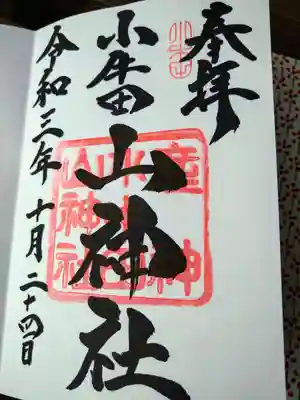 奉拝
小牛田
山神社
令和三年十月二十四日
小牛田
山神社